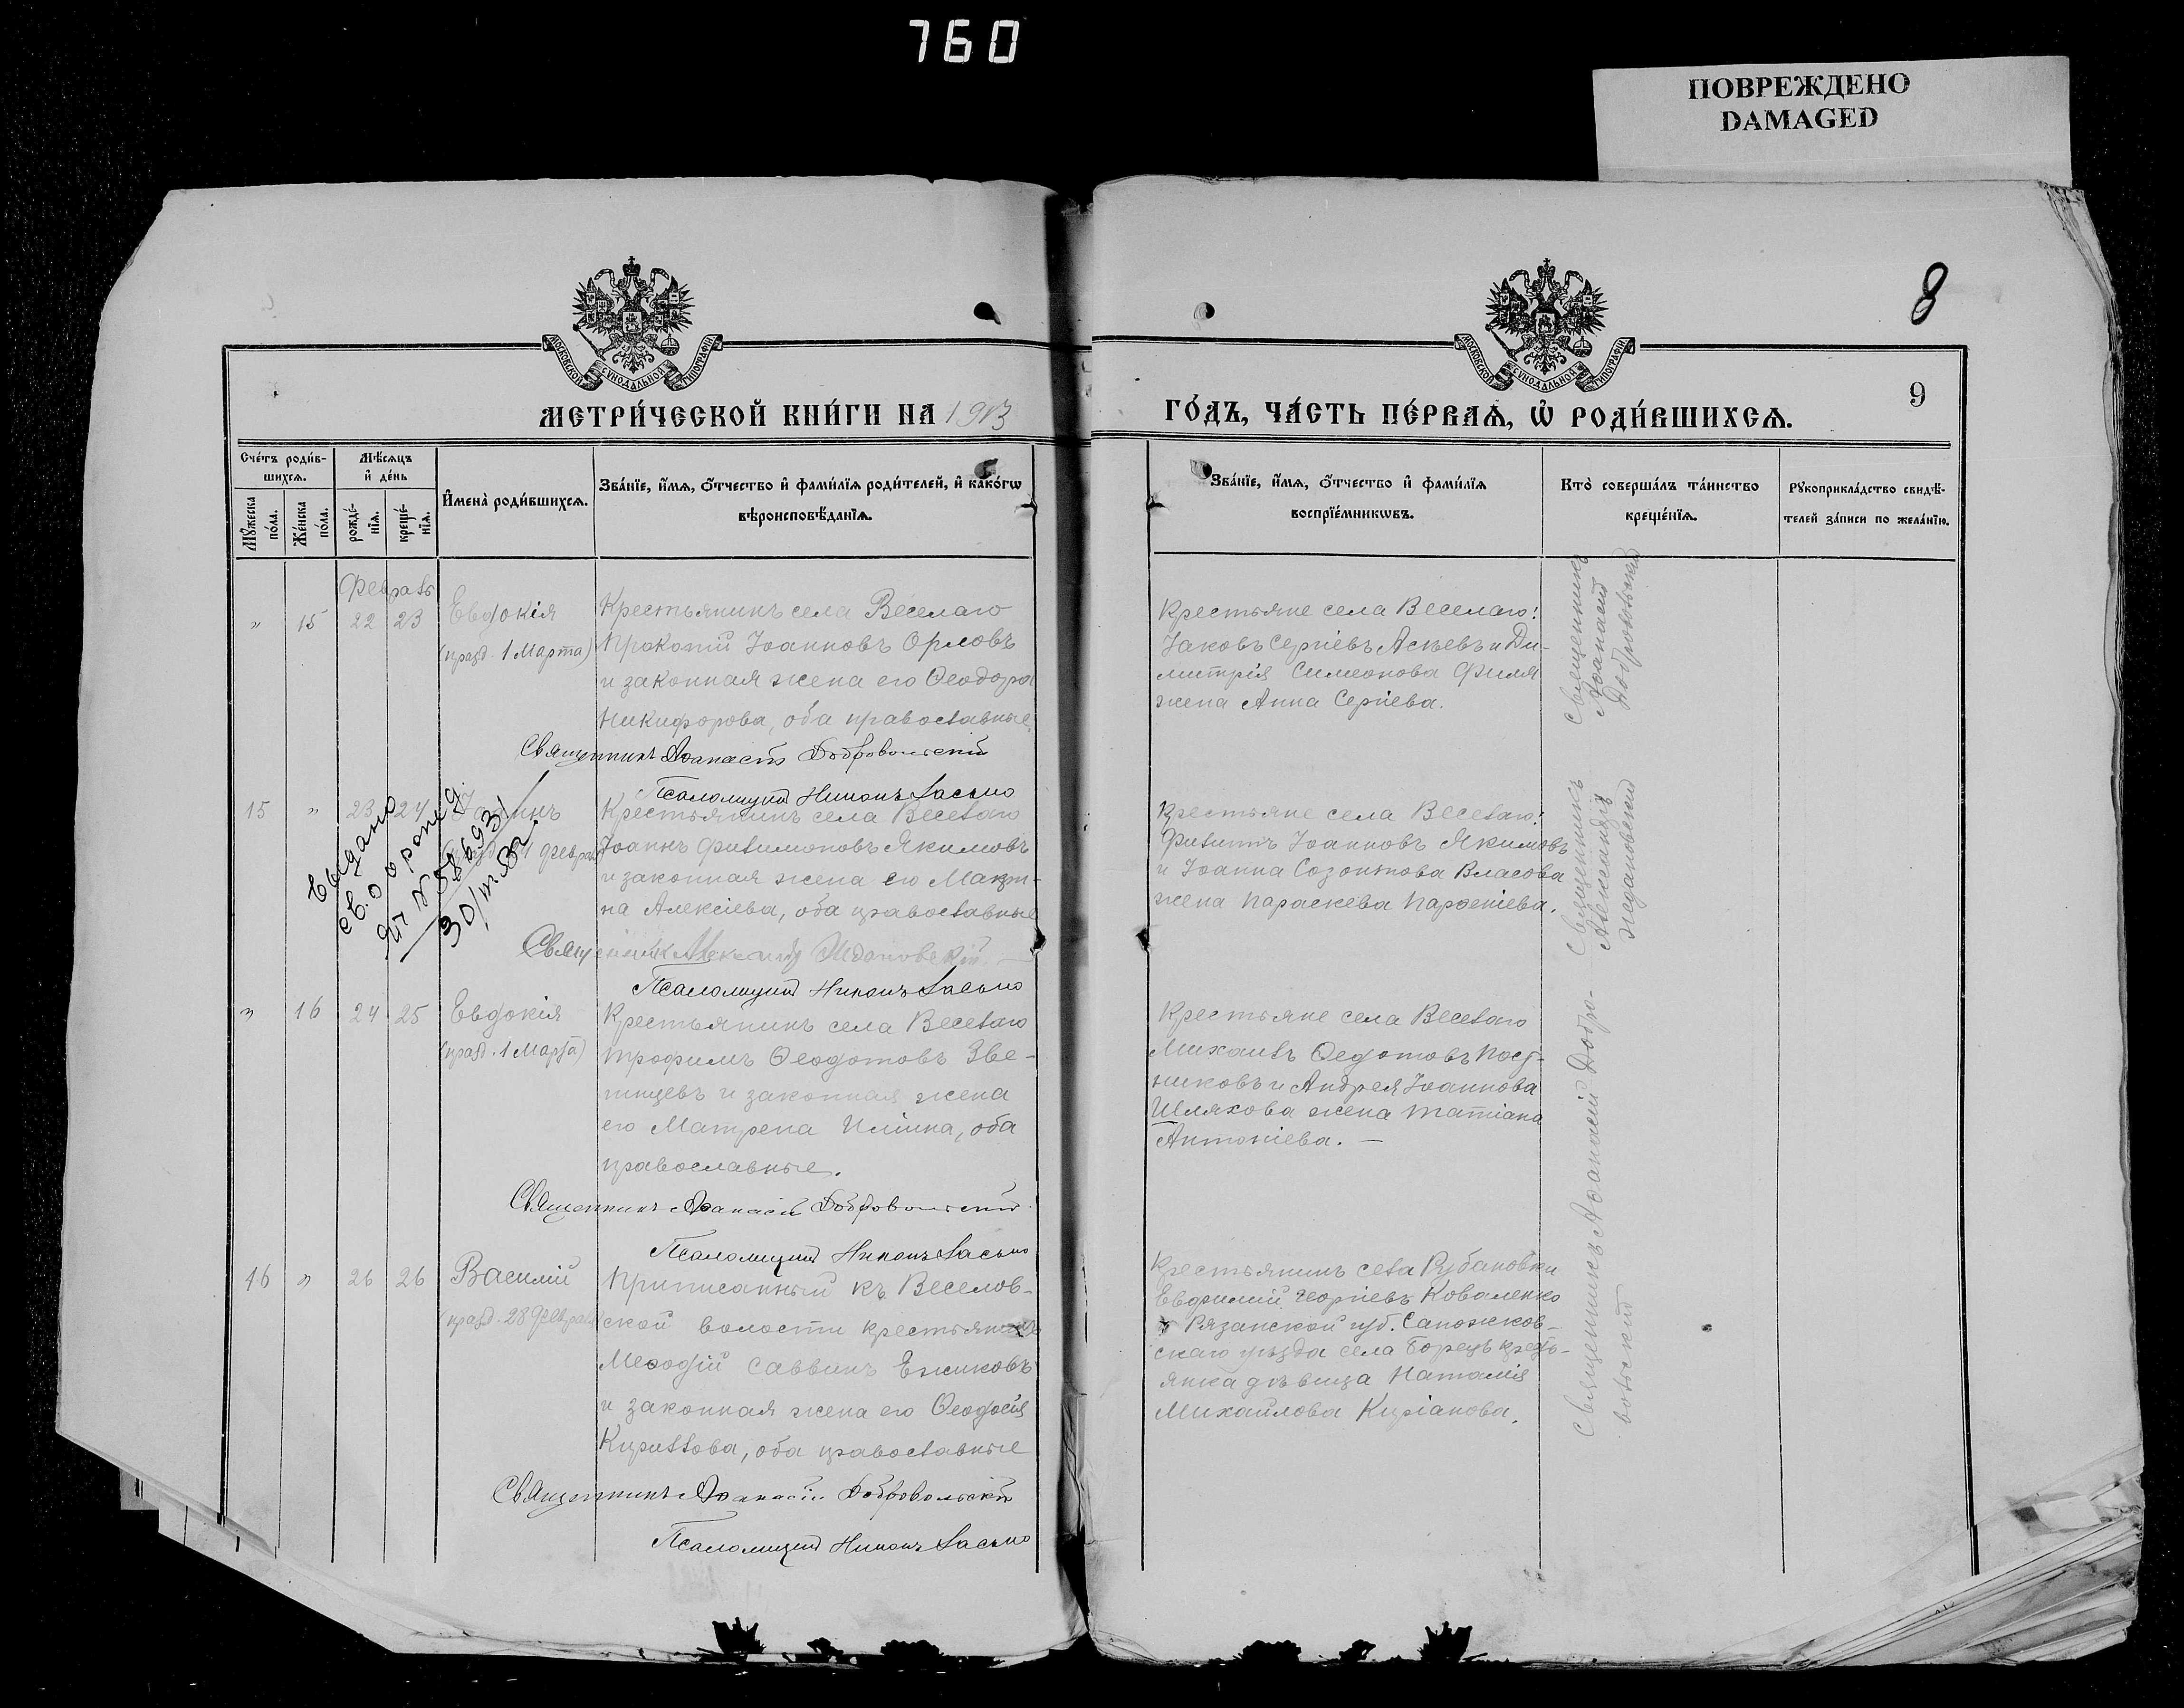 760
ПОВРЕЖДЕНО
DAMAGED
8
МОСКОВСКОЙ СѴНОДАЛЬНОЙ ТИПОГРАФІИ
МОСКОВСКОЙ СѴНОДАЛЬНОЙ ТИПОГРАФІИ
9
МЕТРИ́ЧЕСКОЙ КНИ́ГИ НА 1913
ГО́ДЪ, ЧА́СТЬ ПЕ́РВАѦ, Ѡ҆ РОДИ́ВШИХСѦ.
Сче́тъ роди́в-
шихсѧ.
Мꙋжеска по́ла.
Же́нска по́ла.
Мѣ́сѧцъ
и҆ де́нь
рожде́-
нїѧ.
креще́-
нїѧ.
И҆мена̀ роди́вшихсѧ.
Зва́нїе, и҆́мѧ, ѻ҆́тчество и҆ фами́лїѧ роди́телей, и҆ како́гѡ
вѣроисповѣ́данїѧ.
Зва́нїе, и҆́мѧ, ѻ҆́тчество и҆ фами́лїѧ
воспрїе́мникѡвъ.
Кто̀ соверша́лъ та́инство
креще́нїѧ.
Рꙋкоприкла́дство свидѣ́-
телей за́писи по жела́нїю.
Февраль
" 15 22 23 Евдокія
(празд. 1 Марта)
Крестьянинъ села Веселаго
Прокопій Іоанновъ Орловъ
и законная жена его Ѳеодора
Никифорова, оба православные
Священникъ Аѳанасій Добровольскій
Псаломщикъ Никонъ Ласько
Крестьяне села Веселаго:
Іаковъ Сергіевъ Аскевъ и Ди-
митрія Симеонова Филя
жена Анна Сергіева.
Священникъ
Аѳанасій
Добровольскій
15 " 23 24 Іоаннъ
Выдано
св. о рожд.
30/
Крестьянинъ села Веселаго
Іоаннъ Филимоновъ Якимовъ
и законная жена его Макри-
на Алексіева, оба православные
Священникъ Александръ Ждановскій
Псаломщикъ Никонъ Ласько
Крестьяне села Веселаго:
Филиппъ Іоанновъ Якимовъ
и Іоанна Созонтова Власова
жена Параскева Парѳеніева.
Священникъ
Александръ
Ждановскій
" 16 24 25 Евдокія
(празд. 1 Марта)
Крестьянинъ села Веселаго
Трофимъ Ѳеодотовъ Зве-
пицевъ и законная жена
его Матрена Иліина, оба
православные.
Священникъ Аѳанасій Добровольскій
Псаломщикъ Никонъ Ласько
Крестьяне села Веселаго
Михаилъ Ѳедотовъ Позд-
никовъ и Андрея Іоаннова
Шляхова жена Татіана
Антоніева. —
16 " 26 26 Василій
(празд. 28 Февраля)
Приписанный къ Веселов-
ской волости крестьянинъ
Меѳодій Саввинъ Ежиковъ
и законная жена его Ѳеодосія
Кириллова, оба православные
Священникъ Аѳанасій Добровольскій
Псаломщикъ Никонъ Ласько
Крестьянинъ села Рубановки
Евфимій Георгіевъ Коваленко
и Рязанской губ. Сапожков-
скаго уѣзда села Борецъ кресть-
янка дѣвица Наталія
Михайлова Кирїанова.
Священникъ Аѳанасій Добро-
вольскій